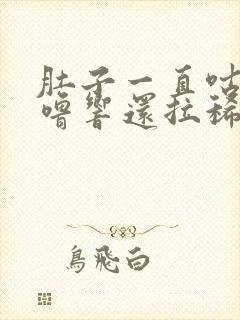 肚子一直咕
噜響還拉稀
鳥飛白